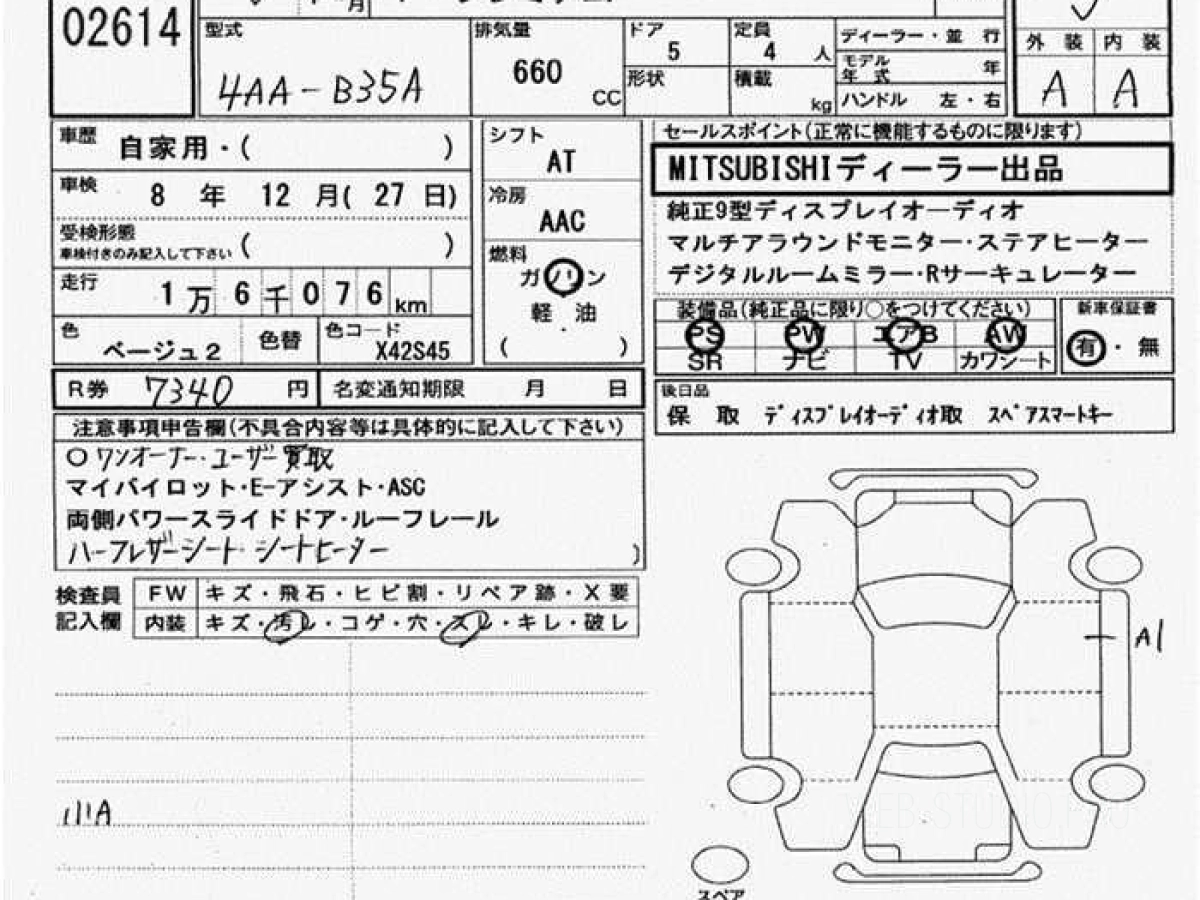 02614
月
型式
4AA-B35A
排気量
660
CC
ドア
5
形状
定員
4 人
積載
kg
ディーラー・並 行
モデル
年 式 年
ハンドル 左・右
外 装 内 装
A A
車歴 自家用・( )
車検 8 年 12 月( 27 日)
受検形態
車検付きのみ記入して下さい ( )
走行 1 万 6 千 0 7 6 km
色 ベージュ2 色替 色コード X42S45
シフト
AT
冷房
AAC
燃料
ガソリン
軽 油
・
( )
セールスポイント(正常に機能するものに限ります)
MITSUBISHIディーラー出品
純正9型ディスプレイオーディオ
マルチアラウンドモニター・ステアヒーター
デジタルルームミラー・Rサーキュレーター
装備品(純正品に限り○をつけてください)
PS PW エアB AW
SR ナビ TV カワシート
新車保証書
有・無
R券 7340 円 名変通知期限 月 日
後日品
保 取 ディスプレイオーディオ取 スペアスマートキー
注意事項申告欄(不具合内容等は具体的に記入して下さい)
○ワンオーナー・ユーザー買取
マイパイロット・E-アシスト・ASC
両側パワースライドドア・ルーフレール
ハーフレザーシート・シートヒーター
)
検査員
記入欄
FW キズ・飛石・ヒビ割・リペア跡・X要
内装 キズ・汚レ・コゲ・穴・スレ・キレ・破レ
小A
A1
スペア